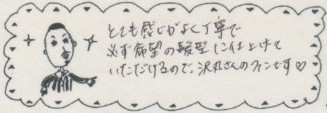 とても感じがよく丁寧で
必ず希望の髪型に仕上げて
いただけるので、沢丸さんのファンです♡